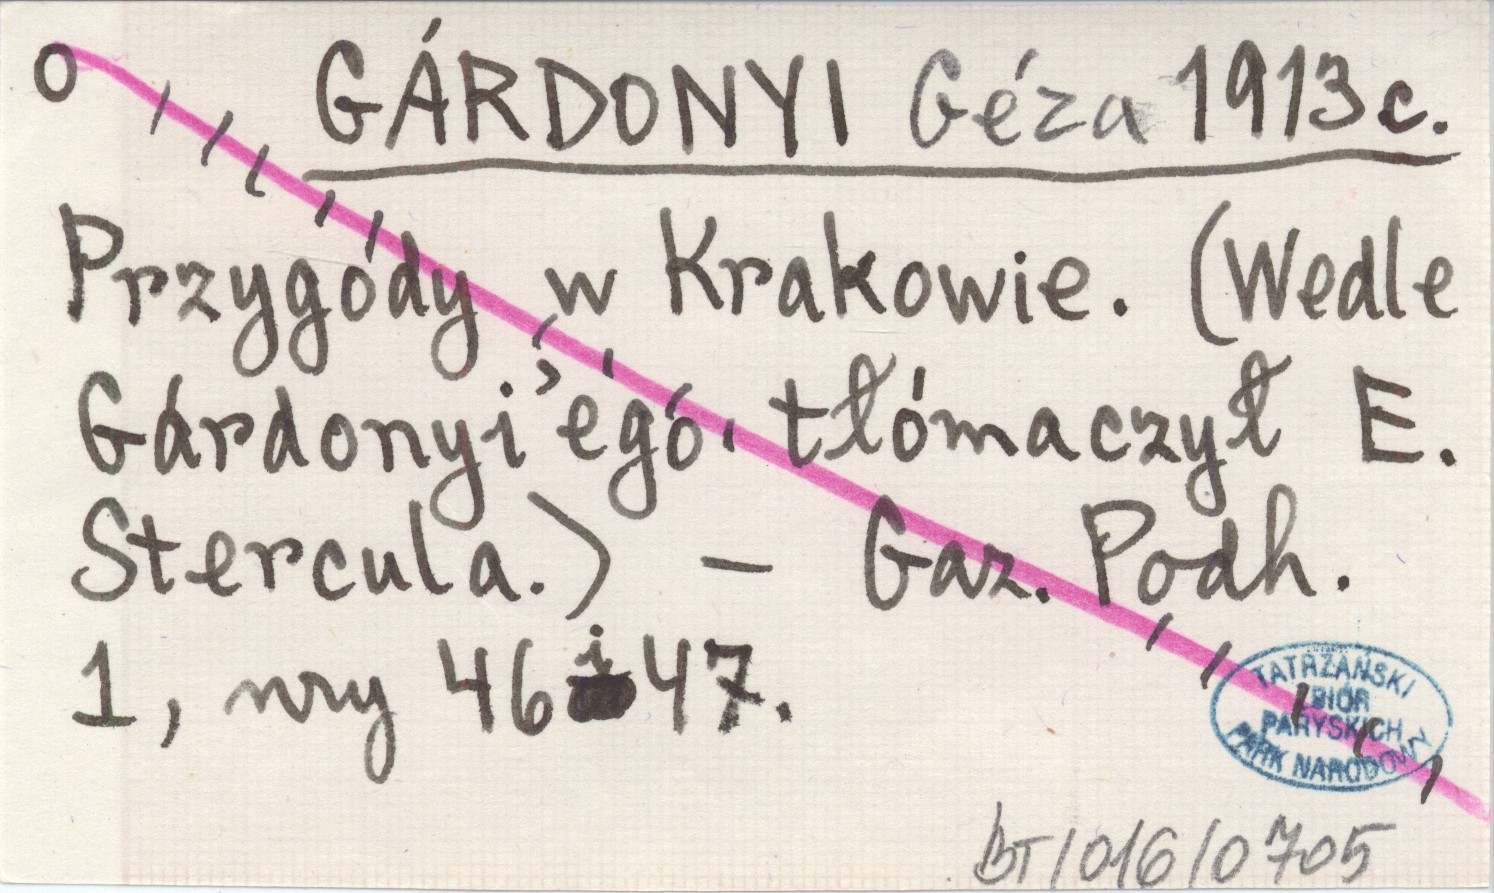 O GÁRDONYI Géza 1913 c.
Przygódy w Krakowie. (Wedle
Gárdonyi'egó tłómaczył E.
Stercula.) – Gaz. Podh.
1, nry 46 i 47.
TATRZAŃSKI
ZBIÓR
PARYSKICH
PARK NARODOWY
BT/016/0705